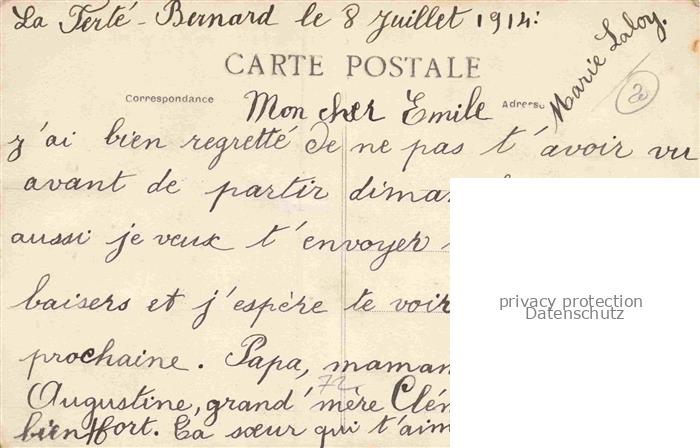 La Ferté-Bernard le 8 Juillet 1914:
Marie Laloy.
CARTE POSTALE
Correspondance
Adresse
20
Mon cher Emile
j'ai bien regretté de ne pas t'avoir vu
avant de partir diman
aussi je veux t'envoyer
baisers et j'espère te voir
privacy protection
Datenschutz
prochaine. Papa, maman
72.
Augustine, grand'mère Clém
bien fort. Ta sœur qui t'aim